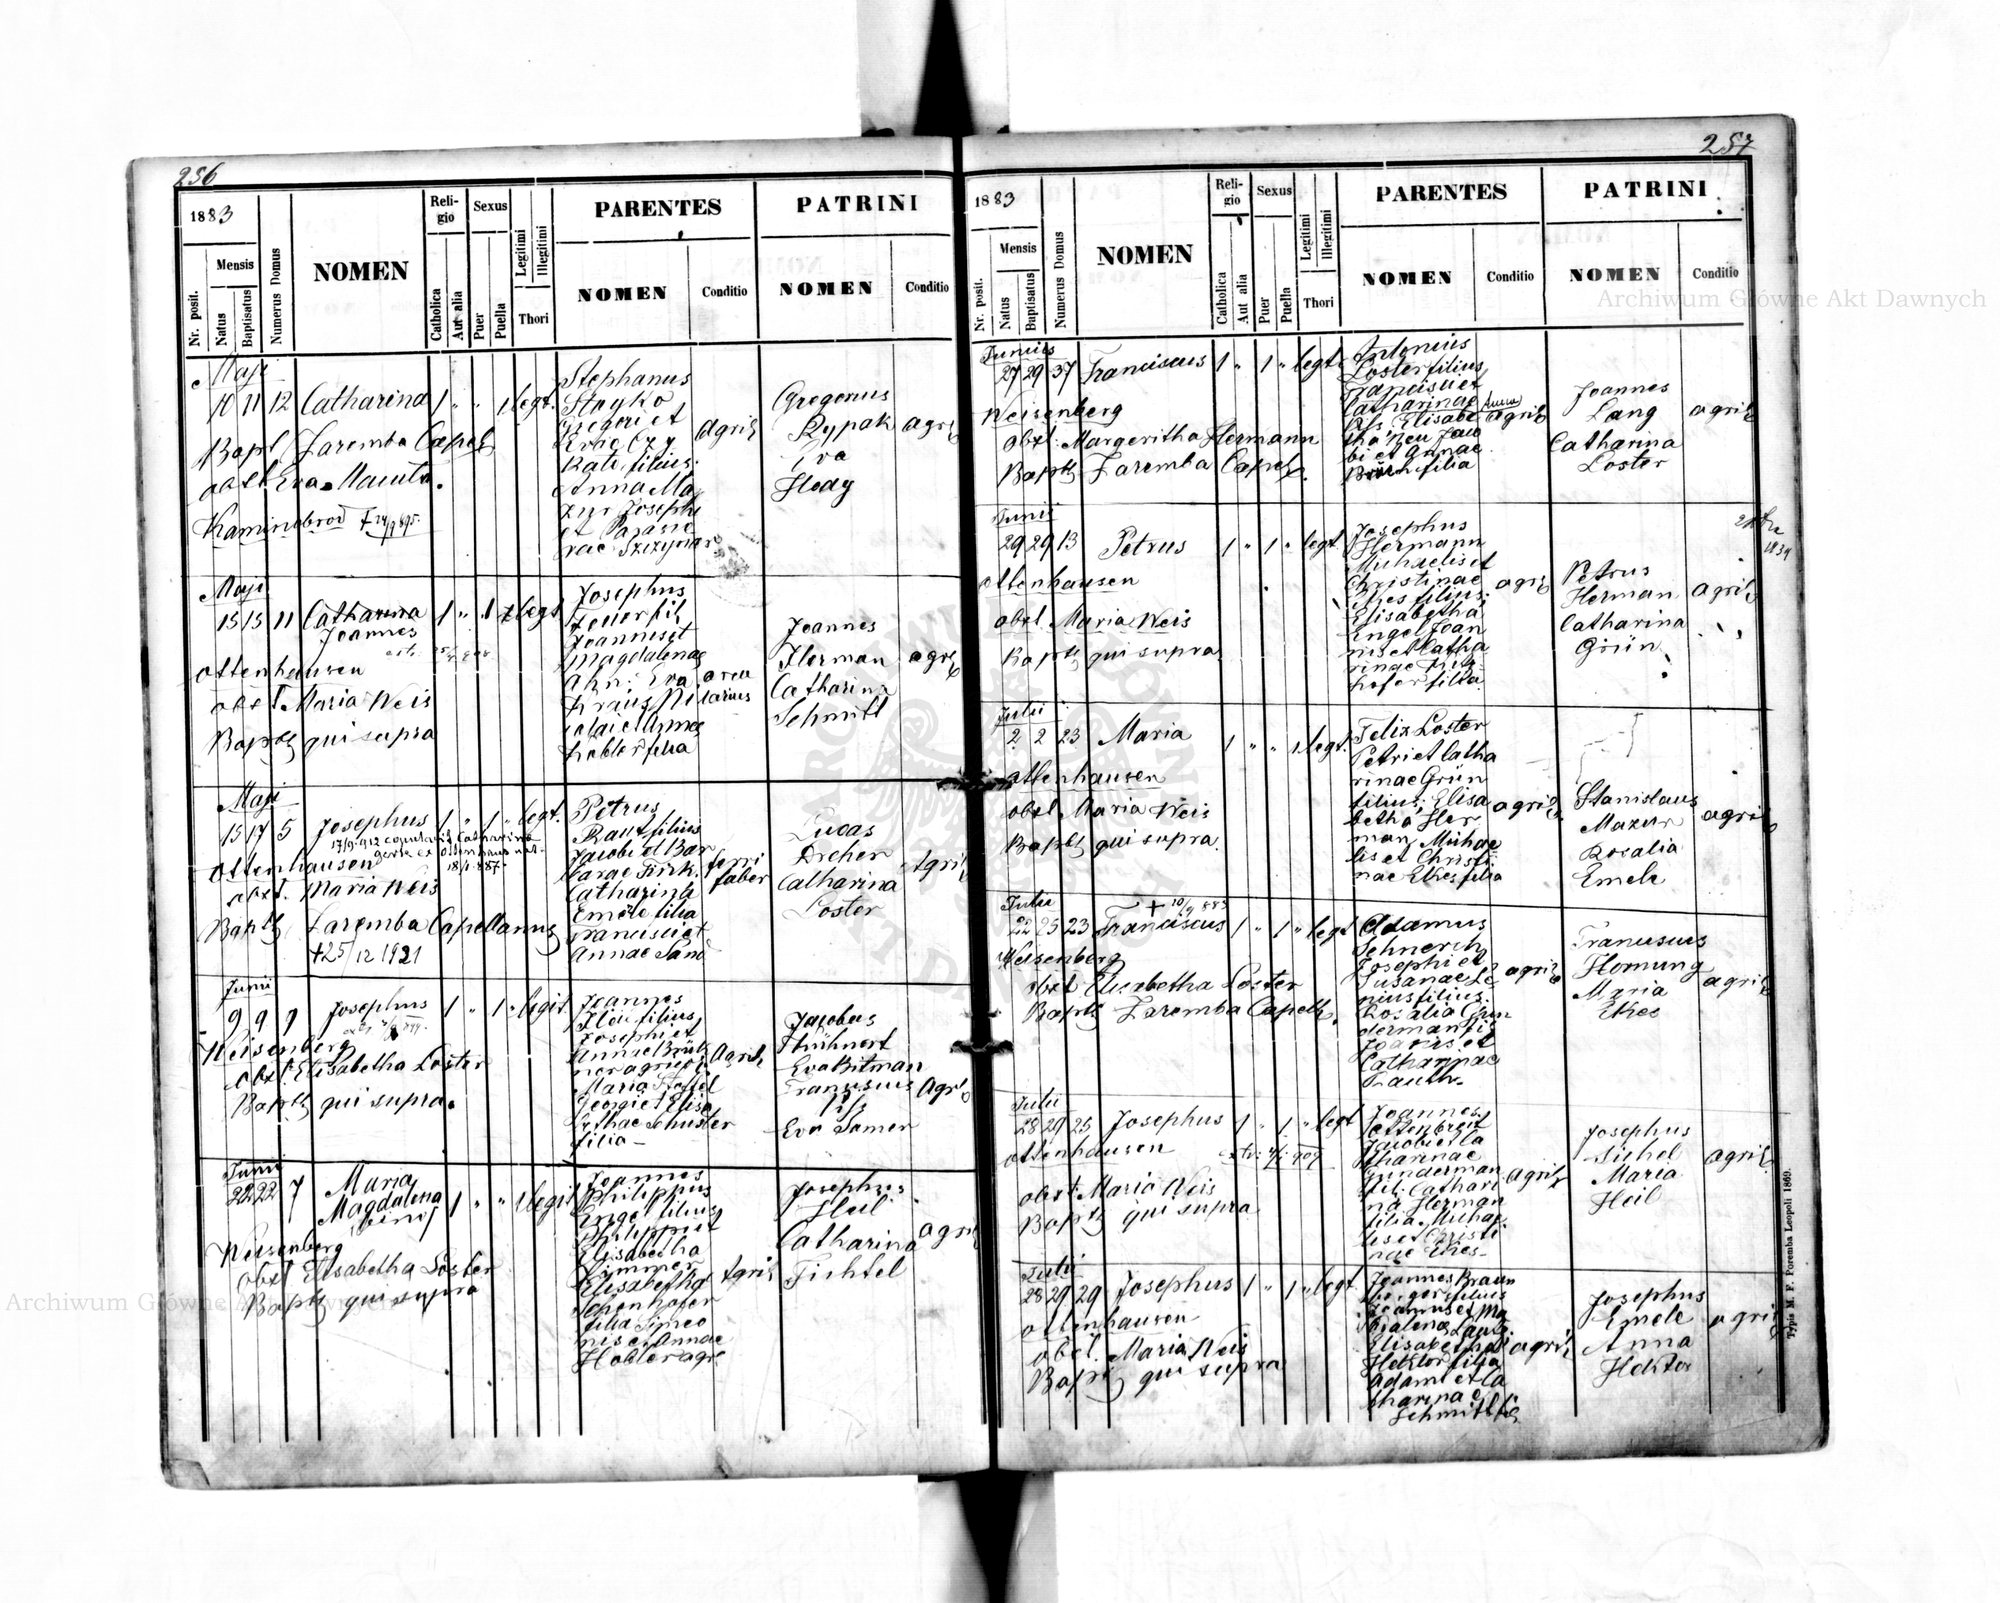 256
1883
Nr. posit.
Mensis
Natus
Baptisatus
Numerus Domus
NOMEN
Reli-
gio
Catholica
Aut alia
Sexus
Puer
Puella
Legitimi
Illegitimi
Thori
PARENTES
NOMEN
Conditio
PATRINI
NOMEN
Conditio
Maji
10 11 12 Catharina 1 " " 1 legt.
Bapt Zaremba Capel
obst Eva
Kaminobrod
Stephanus
Stayko
Gregori et
filius
Anna Ma
zur Josephi
et
agric
Gregorius
Rypak
Eva
Hody
agric
Maji
15 15 11 Catharina 1 " 1 legt
Joannes
Ottenhausen
obst. Maria Weis
Baptz qui supra
Josephus
fil
Joannis et
Magdalenae
Eva
Kraus Ni
colai et Annae
Kobler filia
Joannes
Herman
Catharina
Schmitt
agric
Maji
15 17 5 Josephus 1 " 1 " legt.
17/9 912 copulatus Catharina
18/1 887.
Ottenhausen
obst. Maria Weis
Baptz Zaremba Capellanus
+25/12 1921
Petrus
Rauh filius
Jacobi et Bar
barae Fink.
Catharina
Emele filia
Francisci et
Annae Sand
ferri
faber
Lucas
Becher
Catharina
Loster
Agric
Junii
9 9 9 Josephus 1 " 1 " legit.
Weisenberg
obst. Elisabetha Loster
Baptz qui supra.
Joannes
filius
Josephi et
Annae Brük
ner agricol
Maria
Georgi et Elisa
bethae Schuster
filia
Agric
Jacobus
Hühnert
Eva Bitman
Franciscus
Eva Samer
Agric
Junii
22 22 7 Maria
Magdalena
1 " " 1 legit
Weisenberg
obst Elisabetha Loster
Baptz qui supra
Joannes
Philippus
Engel filius
Philippi et
Elisabetha
Zimmer
Elisabetha
Schenhofer
filia Simeo
nis et Annae
Hobler agr.
Agric
Josephus
Heil
Catharina
Fichtel
agric
257
1883
Nr. posit.
Mensis
Natus
Baptisatus
Numerus Domus
NOMEN
Reli-
gio
Catholica
Aut alia
Sexus
Puer
Puella
Legitimi
Illegitimi
Thori
PARENTES
NOMEN
Conditio
PATRINI
NOMEN
Conditio
Junius
27 29 37 Franciscus 1 " 1 " legt
Weisenberg
obst. Margeritha Hermann
Baptz Zaremba Capel
Antonius
Loster filius
Francisci et
Catharinae
Elisabe
tha Neu Jaco
bi et Annae
filia
agric
Joannes
Lang
Catharina
Loster
agric
Junii
29 29 13 Petrus 1 " 1 " legt
Ottenhausen
obst Maria Weis
Baptz qui supra
Josephus
Hermann
Michaelis et
Christinae
Ekes filius;
Elisabetha
Engel Joan
nis et Catha
rinae
hofer filia
agric
Petrus
Herman
Catharina
Grün
agric
Julii
2 2 23 Maria 1 " " 1 legt.
Ottenhausen
obst Maria Weis
Baptz qui supra.
Felix Loster
Petri et Catha
rinae Grün
filius; Elisa
betha Her
man Michae
lis et Christi
nae Ekes filia
agric
Stanislaus
Mazur
Rosalia
Emele
agric
Julii
22 25 23 Franciscus 1 " 1 " legt
Weisenberg
obst Elisabetha Loster
Baptz Zaremba Capell
Adamus
Schnerch
Josephi et
Susanae
filius.
Rosalia Gun
derman fil
Joanis et
Catharinae
Rauh.
agric
Franciscus
Hornung
Maria
Ekes
agric
Julii
28 29 25 Josephus 1 " 1 " legt
Ottenhausen
obst Maria Weis
Baptz qui supra
Joannes
Jacobi et Ca
tharinae
Gunderman
fil. Cathari
na Herman
filia Michae
lis et Christi
nae Ekes
agric
Josephus
Sichel
Maria
Heil
agric
Julii
28 29 29 Josephus 1 " 1 " legt
Ottenhausen
obst. Maria Weis
Baptz qui supra
Joannes Braun
berger filius
Joannis et Ma
gdalena Lautz
Elisabetha
Hektor filia
Adami et Ca
tharinae
Schmitt
agric
Josephus
Emele
Anna
Hektor
agric
Typis M. F. Poremba Leopoli 1869.
Archiwum Główne Akt Dawnych
Archiwum Główne Akt Dawnych
ARCHIWUM GŁÓWNE AKT DAWNYCH